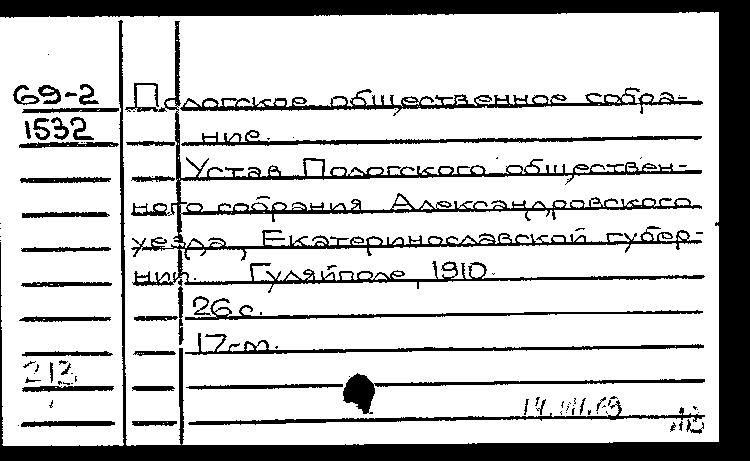 69-2 Пологское общественное собра-
1532 ние.
Устав Пологского обществен-
ного собрания Александровского
уезда, Екатеринославской губер-
нии. Гуляйполе, 1910.
26 с.
17 см.
213
14.VII.69